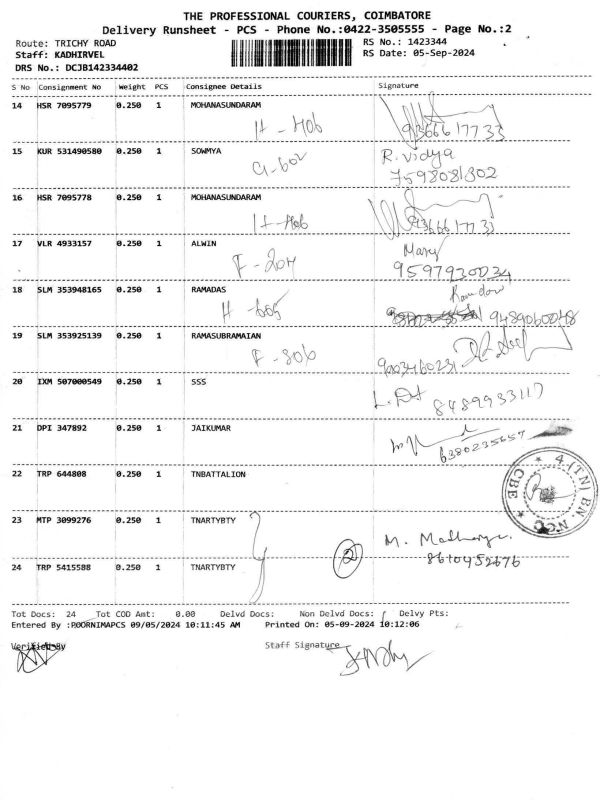 THE PROFESSIONAL COURIERS, COIMBATORE
Delivery Runsheet - PCS - Phone No.:0422-3505555 - Page No.:2
Route: TRICHY ROAD RS No.: 1423344
Staff: KADHIRVEL RS Date: 05-Sep-2024
DRS No.: DCJB142334402
S No Consignment No Weight PCS Consignee Details Signature
14 HSR 7095779 0.250 1 MOHANASUNDARAM
H - 406 9366617733
15 KUR 531490580 0.250 1 SOWMYA R. vidya
G-602 7598081302
16 HSR 7095778 0.250 1 MOHANASUNDARAM
H-406 9366617733
17 VLR 4933157 0.250 1 ALWIN Mary
F-204 9597930034
18 SLM 353948165 0.250 1 RAMADAS
H - 605 9489060048
19 SLM 353925139 0.250 1 RAMASUBRAMAIAN
F-306 9003460231
20 IXM 507000549 0.250 1 SSS
8489933117
21 DPI 347892 0.250 1 JAIKUMAR
6380235657
22 TRP 644808 0.250 1 TNBATTALION
4 (TN) BN. NCC * CBE *
23 MTP 3099276 0.250 1 TNARTYBTY
M.
2 8610452676
24 TRP 5415588 0.250 1 TNARTYBTY
Tot Docs: 24 Tot COD Amt: 0.00 Delvd Docs: Non Delvd Docs: Delvy Pts:
Entered By :POORNIMAPCS 09/05/2024 10:11:45 AM Printed On: 05-09-2024 10:12:06
Verified By Staff Signature